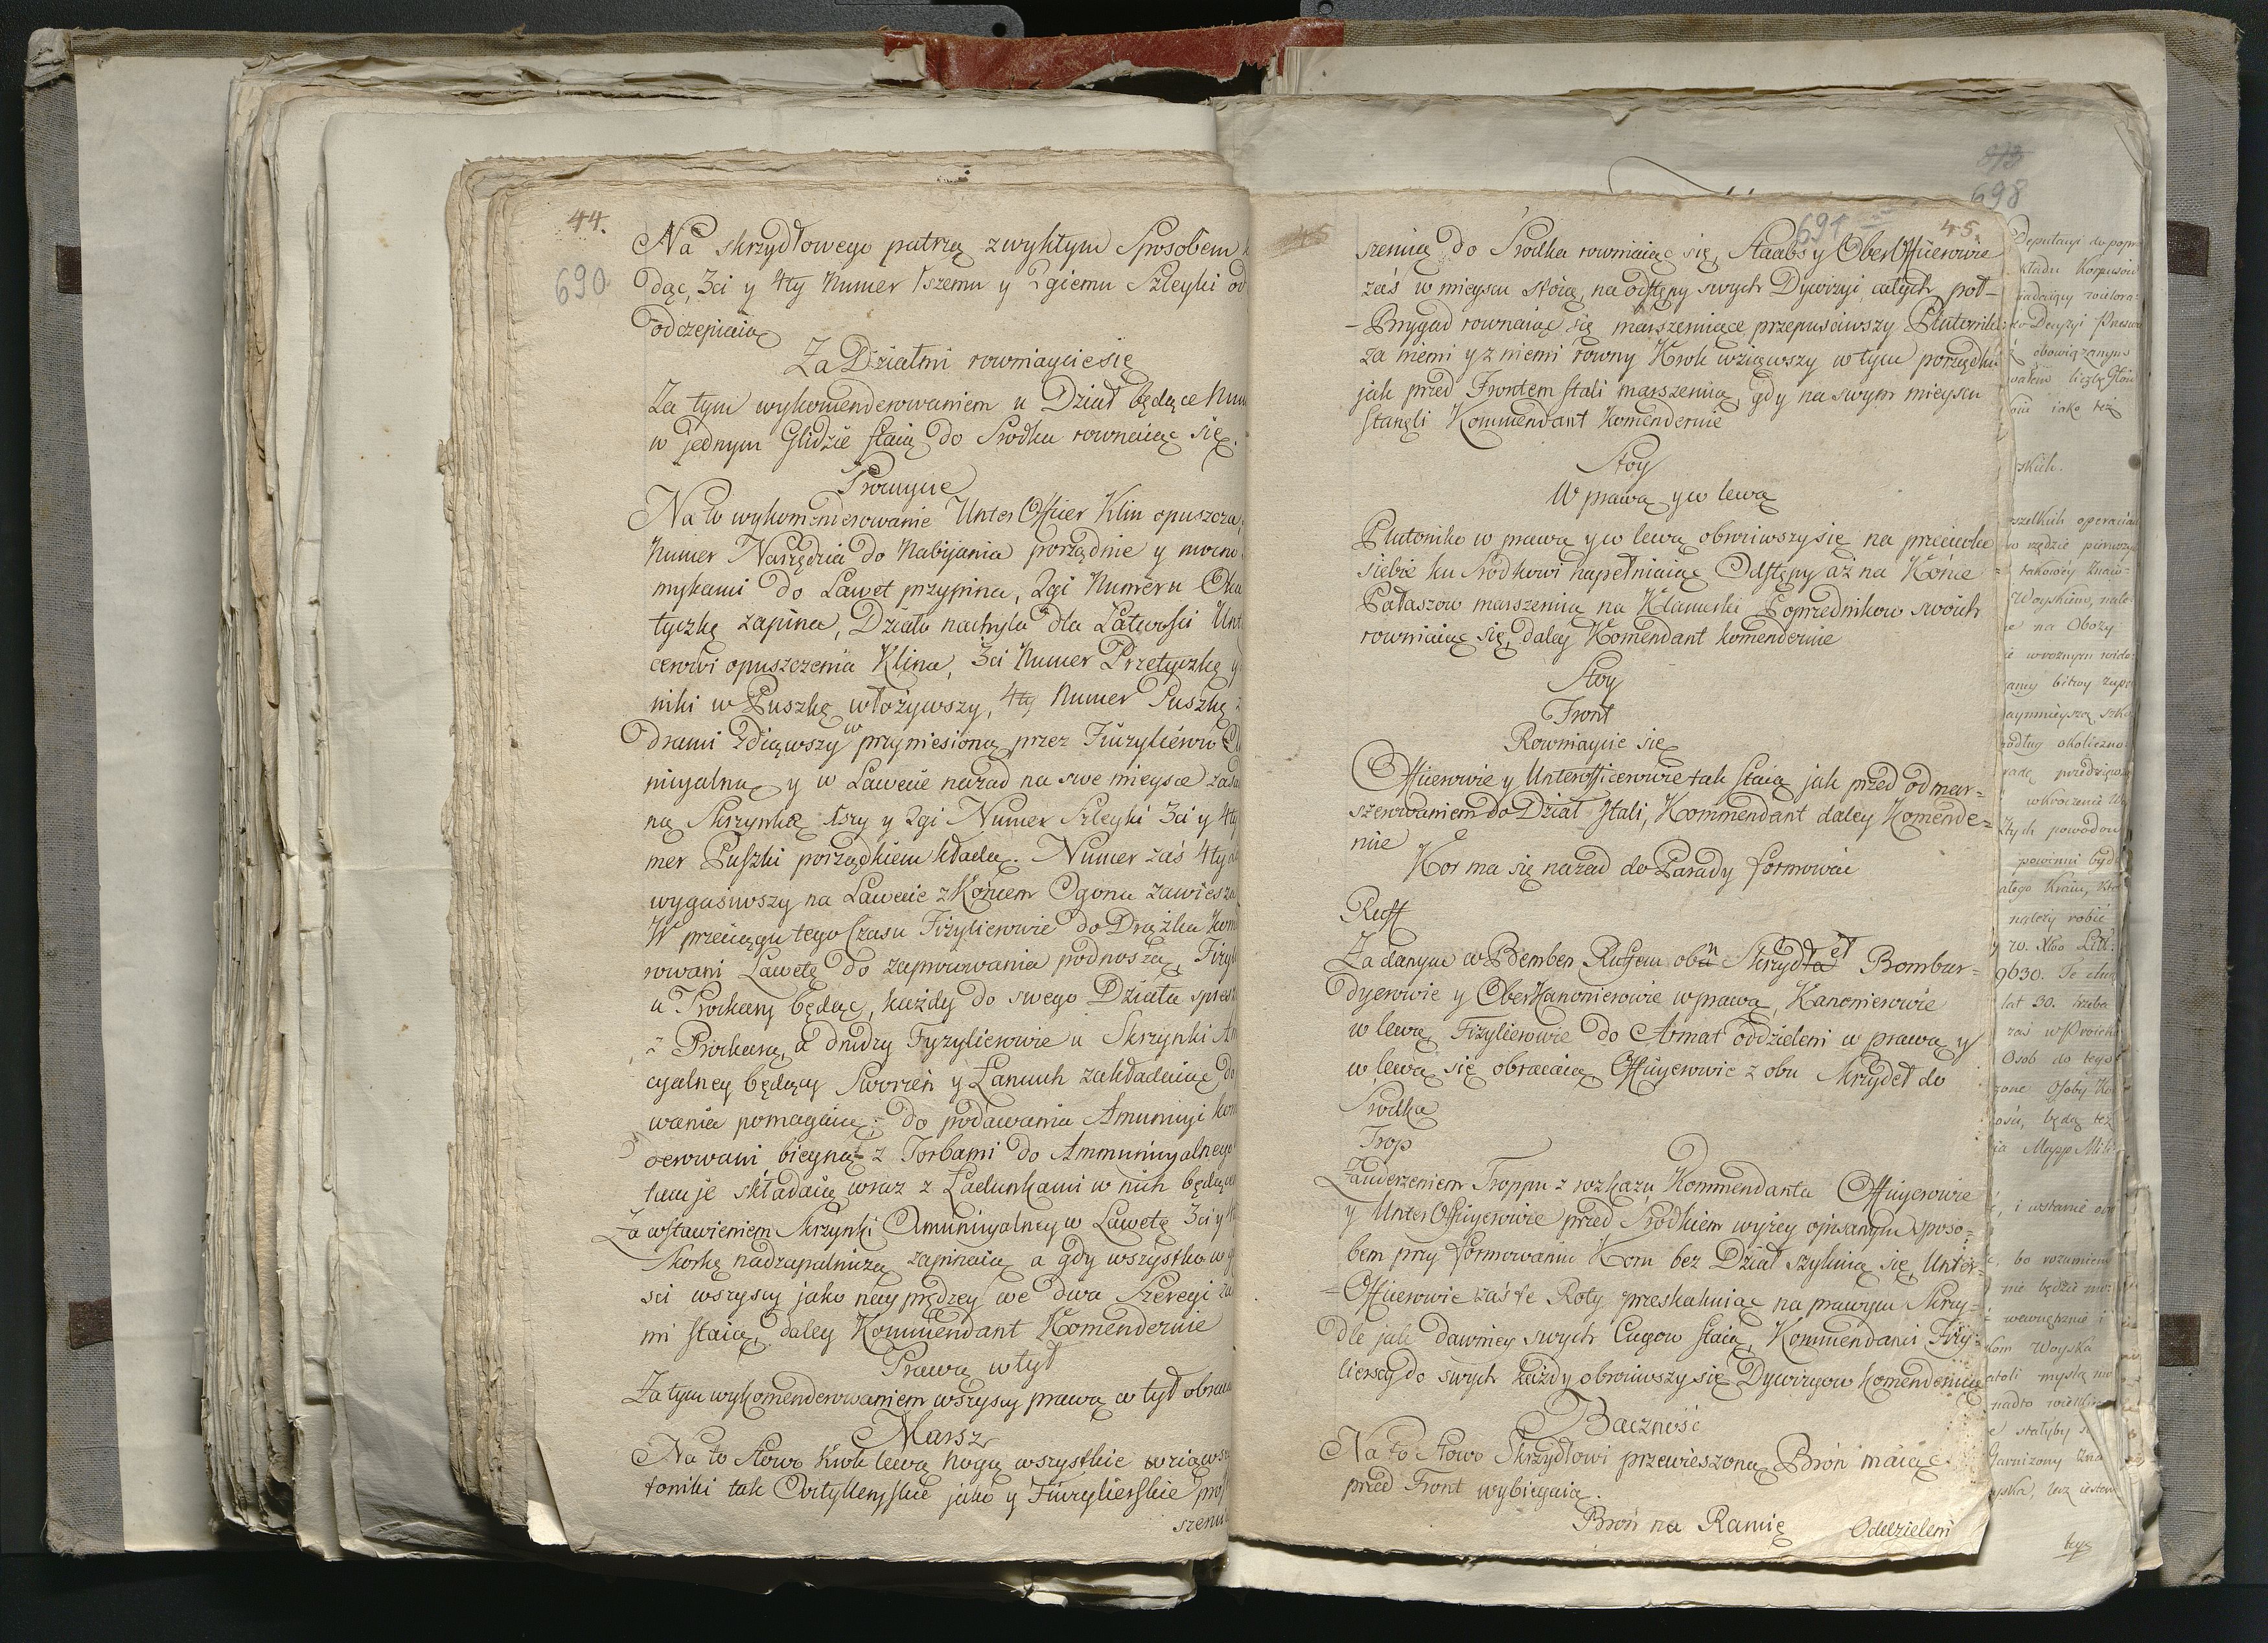 44.
690
Na skrzydłowego patrzą zwykłym Sposobem
dąc, 3ci y 4ty Numer 1szemu y 2giemu Szleyki od
odczepiaią
Za Działmi rowniaycie się
Za tym wykomenderowaniem u Dział będące Num
w jednym Glidzie staią do Srodka rownaiąc się.
Na to wykomenderowanie Unter Officier Klin opuszcza,
Numer Narzędzia do Nabijania porządnie y mocno
mykami do Lawet przypina, 2gi Numer u
tyczkę zapina, Działo nachyla dla Łatwości Unt
cerowi opuszczenia Klina, 3ci Numer Przetyczkę y
niki w Puszkę włożywszy, 4ty Numer Puszkę z
drami zdiąwszy w przyniesioną przez Fuzylierow
nicyalną y w Lawecie nazad na swe mieysce
ną Skrzynkę 1szy y 2gi Numer Szleyki 3ci y 4ty
mer Puszki porządkiem kładą. Numer zaś 4ty
wygasiwszy na Lawecie z Końcem Ogona zawiesza
W przeciągu tego Czasu Fizylierowie do Drążka kom
rowani Lawetę do zaprowania podnoszą, Fizyl
u Prockary będąc, każdy do swego Działa spiesz
z Prockarą, a drudzy Fyzylierowie u Skrzynki Am
cyalney będący Sworzeń y Łancuch zakładaiąc do
wania pomagaią; do podawania Amunicyi kom
derowani biegną z Torbami do Ammunicyalnego
tam je składaią wraz z Ładunkami w nich będące
Za wstawieniem Skrzynki Amunicyalney w Lawetę 3ci y
Skorkę nadzapalniczą zapinaią a gdy wszystko w
sci wszyscy jako nayprędzey we dwa Szeregi za
mi staią, daley Kommendant Komenderuie
Prawą w tył
Za tym wykomenderowaniem wszyscy prawą w tył obraca
Marsz
Na to Słowo Krok lewą nogą wszystkie wziąws
toniki tak Artyleryskie jako y Fuzylierskie
szeru
698
691
45
szeruią do Srodka rowniaiąc się, Staabs y Ober Officerowie
zaś w mieyscu stoią, na odstępy swych Dywizyi, całych poł-
-Brygad rownaiąc się marszeruiące przepusciwszy Plutoniki
za niemi y z niemi rowny Krok wziąwszy w tym porządku
jak przed Frontem stali marszeruią, gdy na swym mieyscu
stanęli Kommendant Komenderuie
Stoy
W prawą y w lewą
Plutoniki w prawą y w lewą obrociwszy się na przeciwko
siebie ku Srodkowi napełniaiąc Odstępy aż na Końce
Pałaszow marszeruią na Klamerki Poprzednikow swoich
rowniaiąc się, daley Komendant komenderuie
Stoy
Front
Rowniaycie się
Officerowie y Unterofficerowie tak staią jak przed odmar-
szerowaniem do Dział stali, Kommendant daley Komende-
ruie
Kor ma się nazad do Parady formować
Ruff
Za danym w Bemben Ruffem obu Skrzydeł Bombar-
dyerowie y Ober Kanonierowie w prawą, Kanonierowie
w lewą Fizylierowie do Armat oddzieleni w prawą y
w lewą się obracaią Officyerowie z obu Skrzydeł do
Srodka
Trop
Za uderzeniem Troppu z rozkazu Kommendanta Officyerowie
y Unter Officyerowie przed Srodkiem wyżey opisanym sposo-
bem przy formowaniu Koru bez Dział szykuią się, Unter-
-Officerowie zaś te Roty przeskakuiąc na prawym Skrzy-
dle jak dawniey swych Cugow staią, Kommendanci Fizy-
lierscy do swych każdy obrociwszy się Dywizyow komenderuią
Baczność
Na to słowo Skrzydłowi przewieszoną Broń maiąc
przed Front wybiegaią.
Broń na Ramię
Oddzieleni
Deputacyi do popr
kładu Korpusów
obowiązanym
iako też
skich.
szelkich operacia
w rzędzie pierwszy
takowey Znaio-
Woyskiem, nale-
na Obozy
w rożnym wido-
bitwy zupe
naymnieyszą, szko
podług okoliczno-
radę przedsięw
wkroczenie
tych powodow
powinni bydź
ałego Kraiu, kto
należy robić
9630.
lat 30. trzeba
zaś w Proiekci
Osob do tego
zone Osoby Ko
będą też
Mapp Mili-
bo rozumiem
nie będzie moż
wewnętrznie i
kom Woyska
myślą
nadto wielki
stałyby
Garnizony
yska, lecz iestem